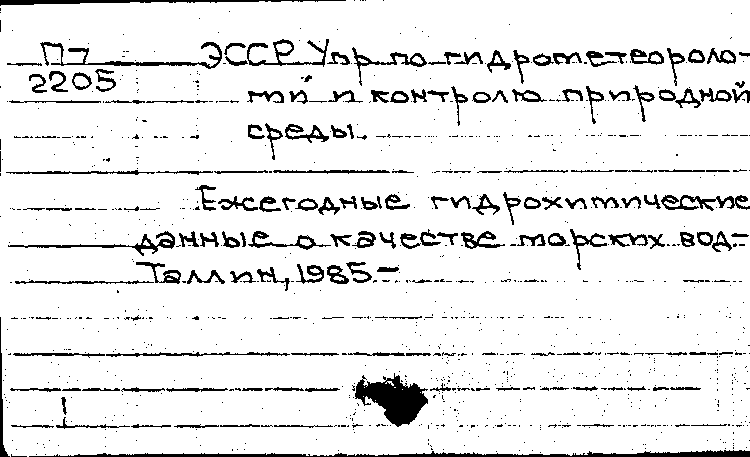 П-7 ЭССР Упр по гидрометеороло-
2205 гии и контролю природной
среды.
Ежегодные гидрохимические
данные о качестве морских вод.-
Таллин, 1985-